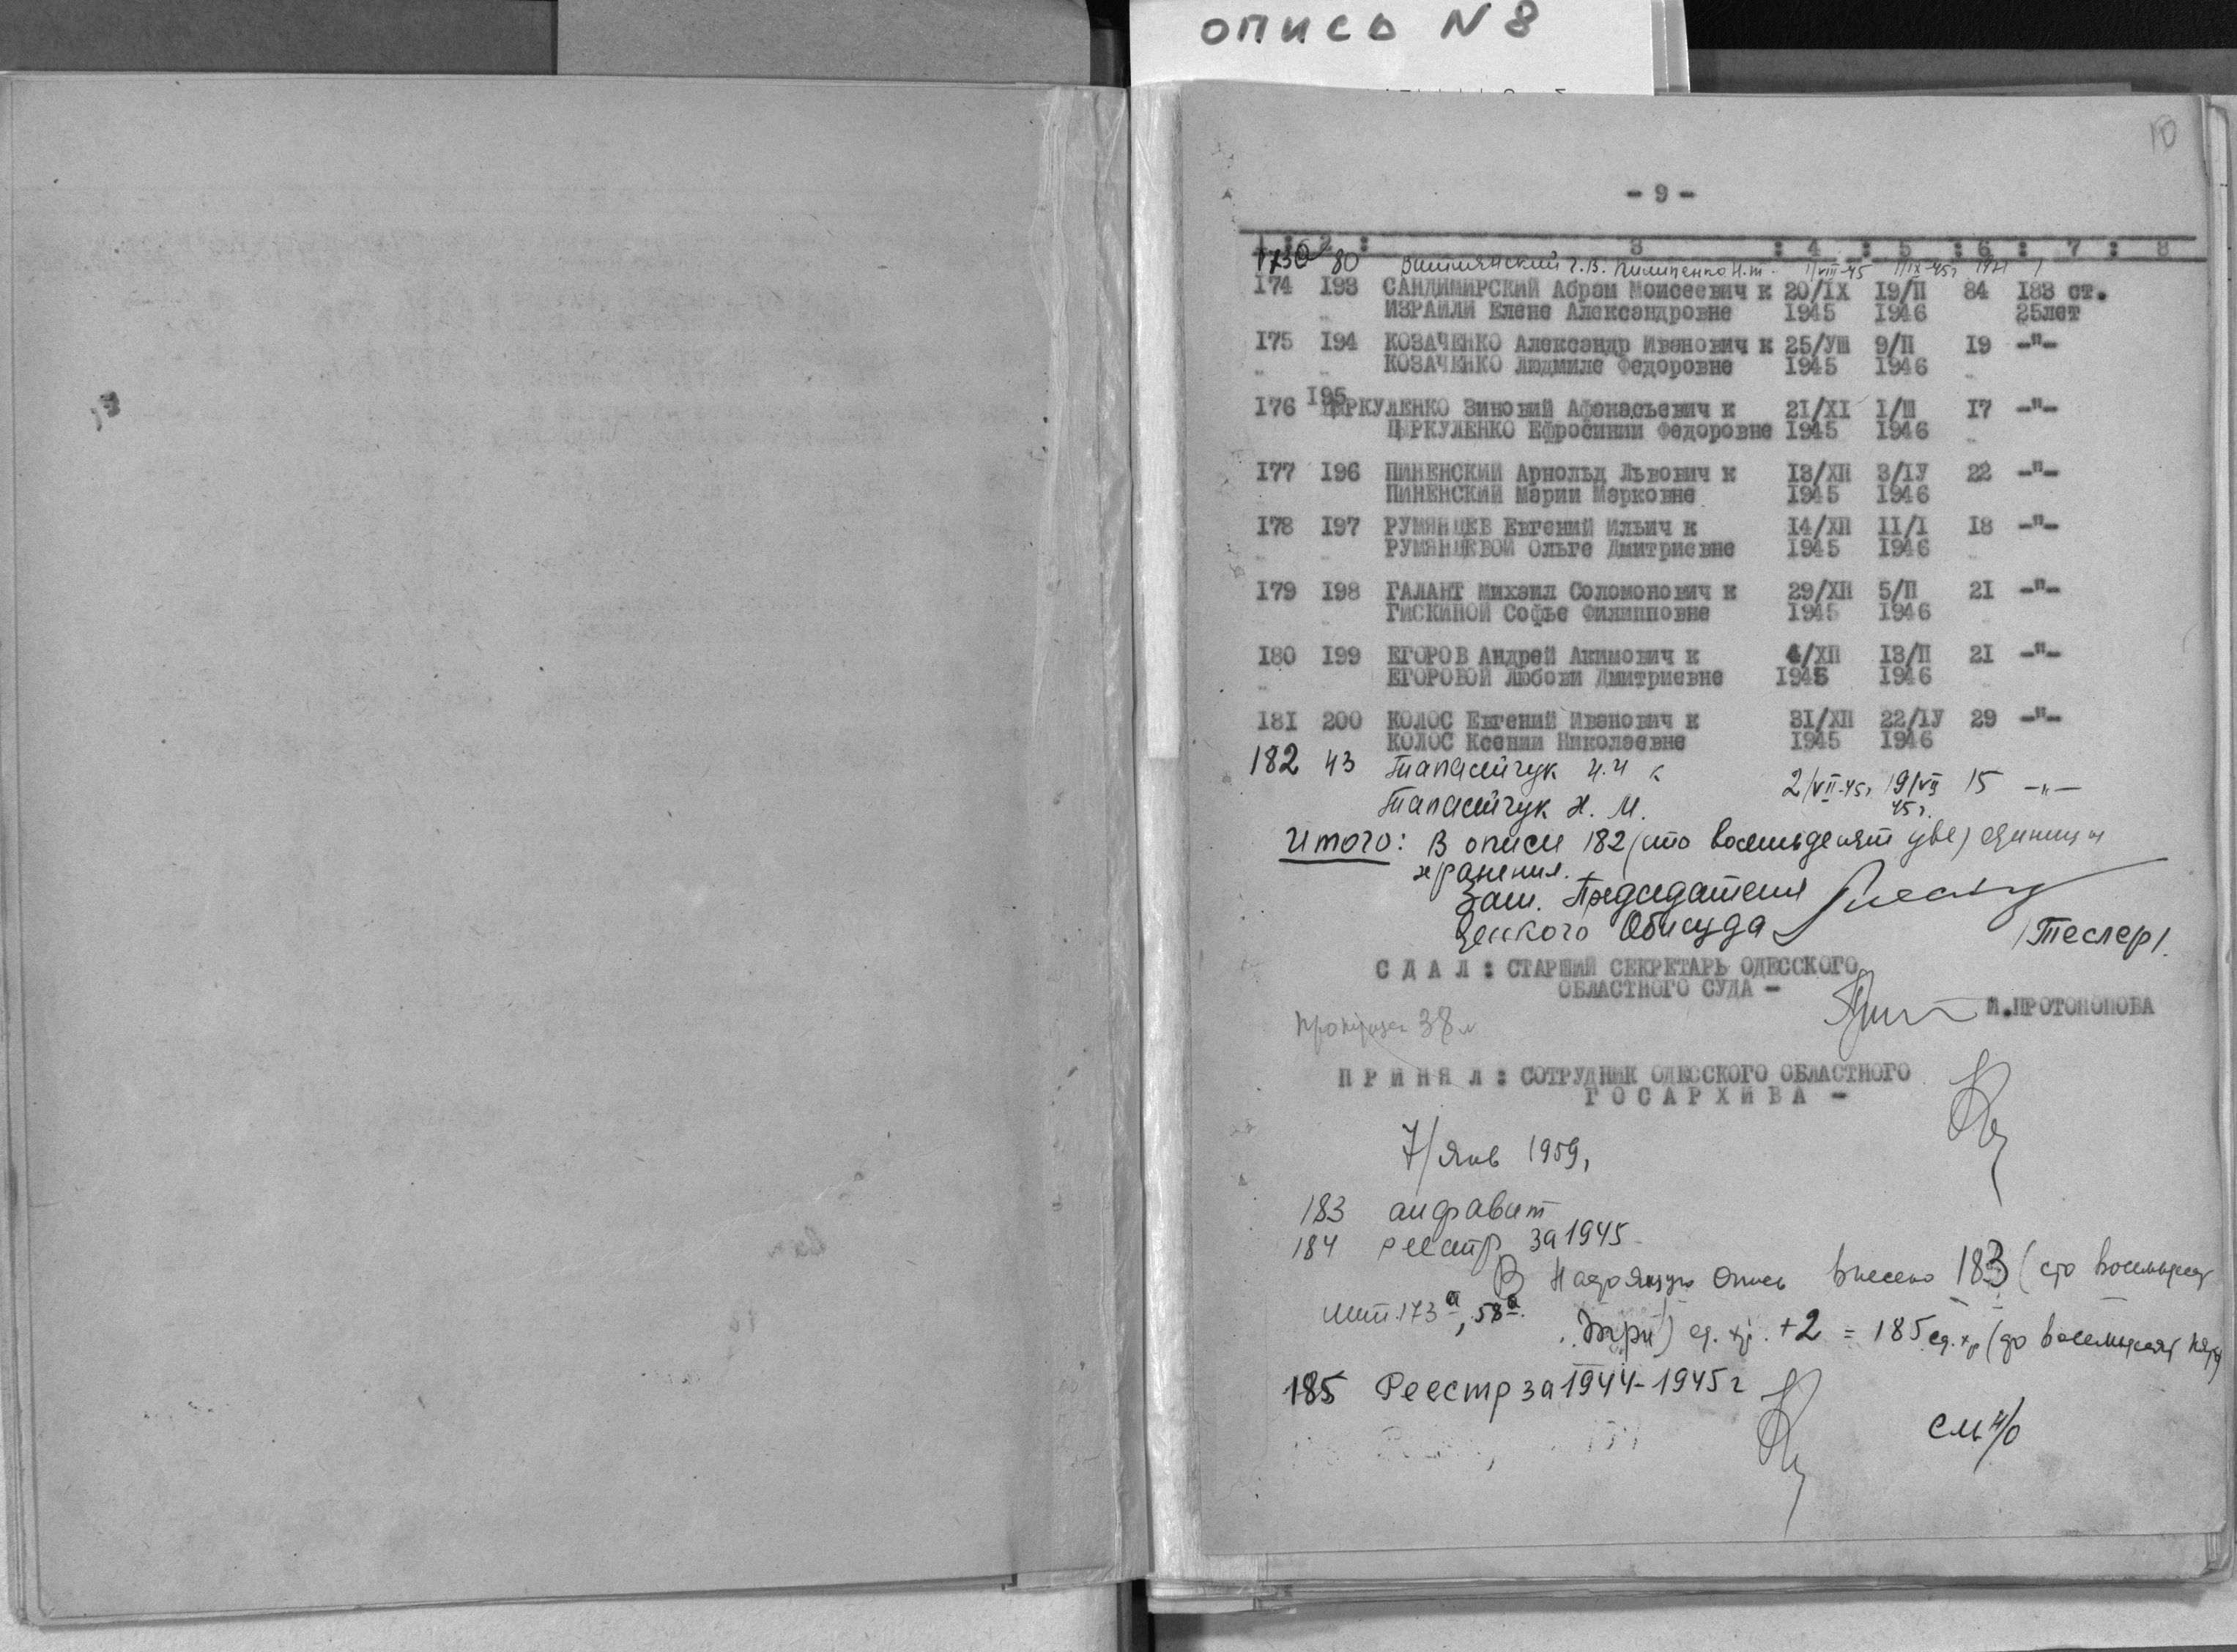 опись N 8
10
- 9 -
1 : 2 : 3 : 4 : 5 : 6 : 7 : 8
173а 80 Пилипенко Н.т. 1/VIII-45 1/IX-45г
174 193 САНДИМИРСКИЙ Абрам Моисеевич к 20/IX 19/П 84 183 ст.
ИЗРАИЛИ Елене Александровне 1945 1946 25лет
175 194 КОЗАЧЕНКО Александр Иванович к 25/УШ 9/П 19 -"-
КОЗАЧЕНКО Людмиле Федоровне 1945 1946
176 195 ЦЫРКУЛЕНКО Зиновий Афонасьевич к 21/XI 1/Ш 17 -"-
ЦЫРКУЛЕНКО Ефросинии Федоровне 1945 1946
177 196 ПИНЕНСКИЙ Арнольд Львович к 13/ХП 3/1У 22 -"-
ПИНЕНСКИЙ Марии Марковне 1945 1946
178 197 РУМЯНЦЕВ Евгений Ильич к 14/ХП 11/I 18 -"-
РУМЯНЦЕВОЙ Ольге Дмитриевне 1945 1946
179 198 ГАЛАНТ Михаил Соломонович к 29/ХП 5/П 21 -"-
ГИСКИНОЙ Софье Филипповне 1945 1946
180 199 ЕГОРОВ Андрей Акимович к 4/ХП 13/П 21 -"-
ЕГОРОВОЙ Любови Дмитриевне 1945 1946
181 200 КОЛОС Евгений Иванович к 31/ХП 22/1У 29 -"-
КОЛОС Ксении Николаевне 1945 1946
182 43 к 2/VII-45г 19/VII 15 -"-
Н. М. 45г.
Итого: В описи 182 (сто восемьдесят две) единицы
хранения.
Зам. Председателя
Одесского Облсуда /Теслер/.
С Д А Л : СТАРШИЙ СЕКРЕТАРЬ ОДЕССКОГО
ОБЛАСТНОГО СУДА - М.ПРОТОПОПОВА
38
П Р И Н Я Л : СОТРУДНИК ОДЕССКОГО ОБЛАСТНОГО
Г О С А Р Х И В А -
7/янв 1959,
183 алфавит
184 реестр за 1945
В настоящую опись внесено 183 (сто восемьдесят
лит. 173а, 58а. три) ед. хр. +2 = 185 ед. хр (сто восемьдесят пять)
185 Реестр за 1944-1945г
см н/о